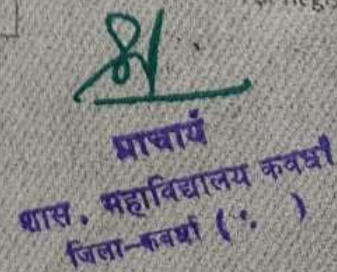 प्राचार्य
शास. महाविद्यालय कवर्धा
जिला-कवर्धा ( . )